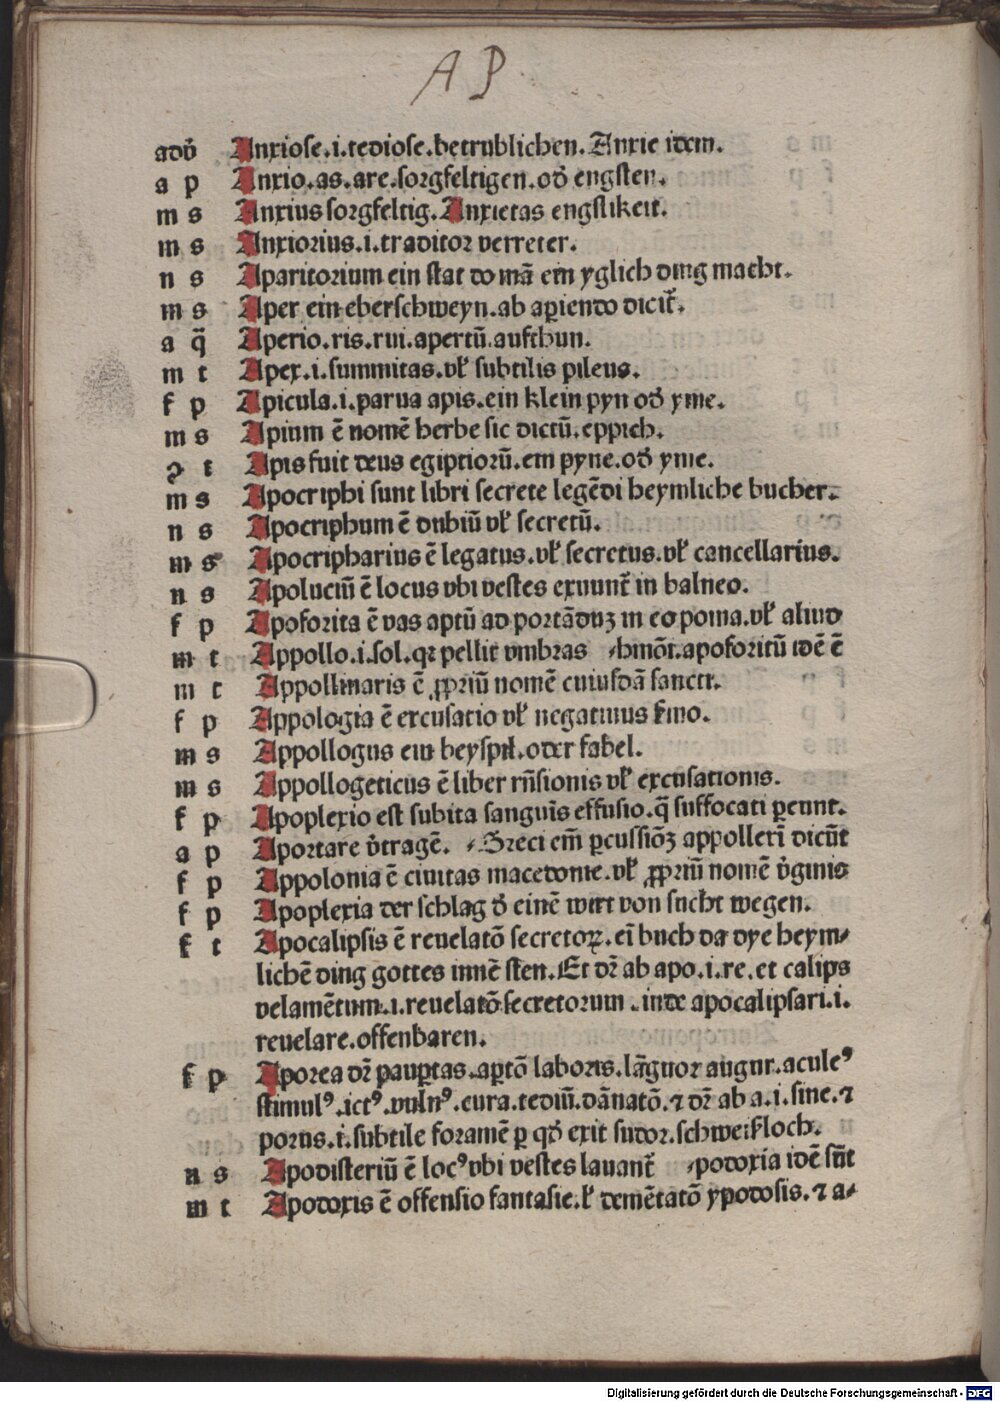 A P
adv̄ Anxiose.i.tediose.betrublichen. Anxie idem.
a p Anxio.as.are.sorgfeltigen.od̄ engsten.
m s Anxius sorgfeltig. Anxietas engstikeit.
m s Anxiorius.i.traditor verreter.
n s Aparitorium ein stat do mā ein yglich ding macht.
m s Aper ein eberschweyn.ab aꝑiendo dicit᷑.
a q̄ Aperio.ris.rui.apertū.aufthun.
m t Apex.i.summitas.vl̕ subtilis pileus.
f p Apicula.i.parua apis.ein klein pyn od̄ yme.
m s Apium ē nomē herbe sic dictū.eppich.
ꝯ t Apis fuit deus egiptiorū.ein pyne.od̄ yme.
m s Apocriphi sunt libri secrete legēdi heymliche bucher.
n s Apocriphum ē dubiū vl̕ secretū.
m s Apocripharius ē legatus.vl̕ secretus.vl̕ cancellarius.
n s Apoluciū ē locus vbi vestes exuunt᷑ in balneo.
f p Apoforita ē vas aptū ad portāduꝫ in eo poma.vl̕ aliud
m t Appollo.i.sol.qꝛ pellit vmbras hmōi.apoforitū idē ē
m t Appollinaris ē ꝓpriū nomē cuiusdā sancti.
f p Appologia ē excusatio vl̕ negatiuus ẜmo.
m s Appollogus ein beyspil.oder fabel.
m s Appollogeticus ē liber rn̄sionis vl̕ excusationis.
f p Apoplexio est subita sanguīs effusio.q̄ suffocati ꝑeunt.
a p Aportare v̓tragē. Greci em̄ ꝑcussiōꝫ appollerī dicūt
f p Appolonia ē ciuitas macedonie.vl̕ ꝓpriū nomē v̓ginis
f p Apoplexia der schlag d̄ einē wirt von sucht wegen.
f t Apocalipsis ē reuelatō secretoꝝ.eī buch da dye heym⸗
lichē ding gottes innē sten.Et dr̄ ab apo.i.re.et calips
velamētum.i.reuelatō secretorum .inde apocalipsari.i.
reuelare.offenbaren.
f p Aporea dr̄ pauꝑtas.aꝑtō laboris.lāguor augur.aculeꝰ
stimulꝰ.ictꝰ.vulnꝰ.cura.tediū.dānatō.⁊ dr̄ ab a.i.sine.⁊
porus.i.subtile foramē ꝑ qd̄ exit sudor.schweißloch.
n s Apodisteriū ē locꝰ vbi vestes lauant᷑ podoxia idē sūt
m t Apodoxis ē offensio fantasie.l̕ demētatō ypodosis.⁊ a⸗
Digitalisierung gefördert durch die Deutsche Forschungsgemeinschaft - DFG